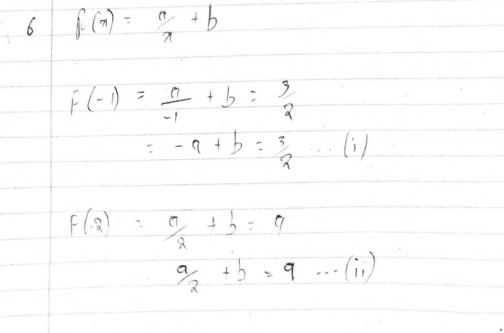 6 f(x) = a/x + b
F(-1) = a/-1 + b = 3/2
= -a + b = 3/2 ... (i)
F(2) = a/2 + b = 9
a/2 + b = 9 ... (ii)